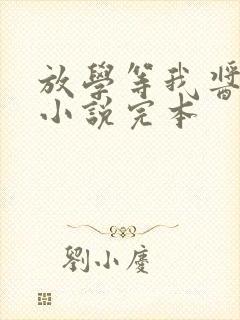 放學等我醬
小說完本
劉小慶